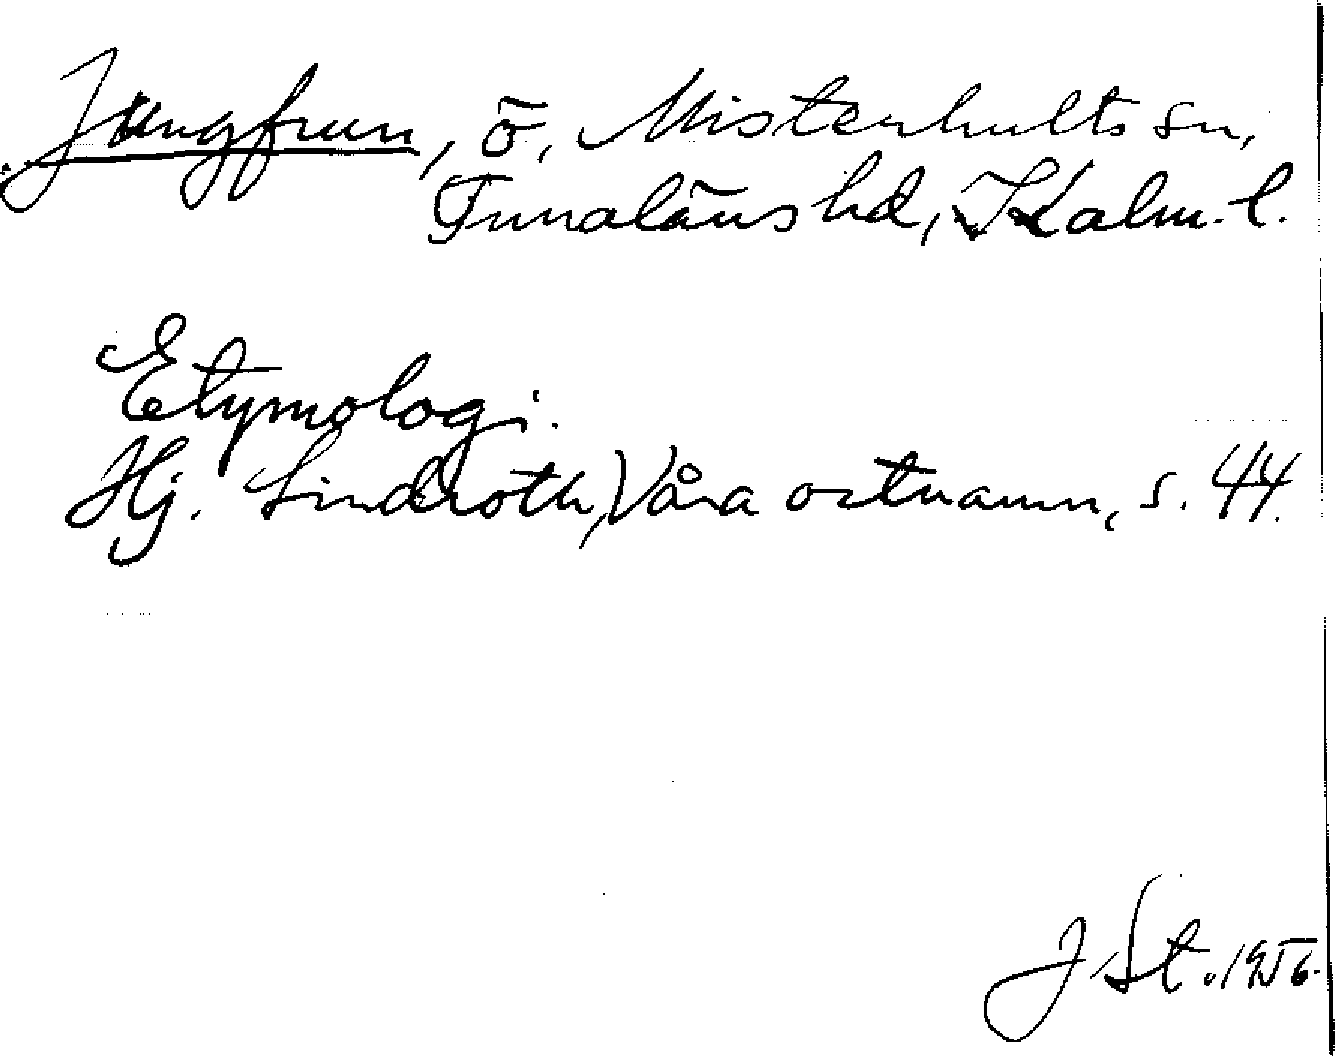 Jungfrun, ö, Misterhults sn,
Tunaläns hd, Kalm. l.
Etymologi.
Hj. Lindroth, Våra ortnamn, s. 44.
J St. 1956.